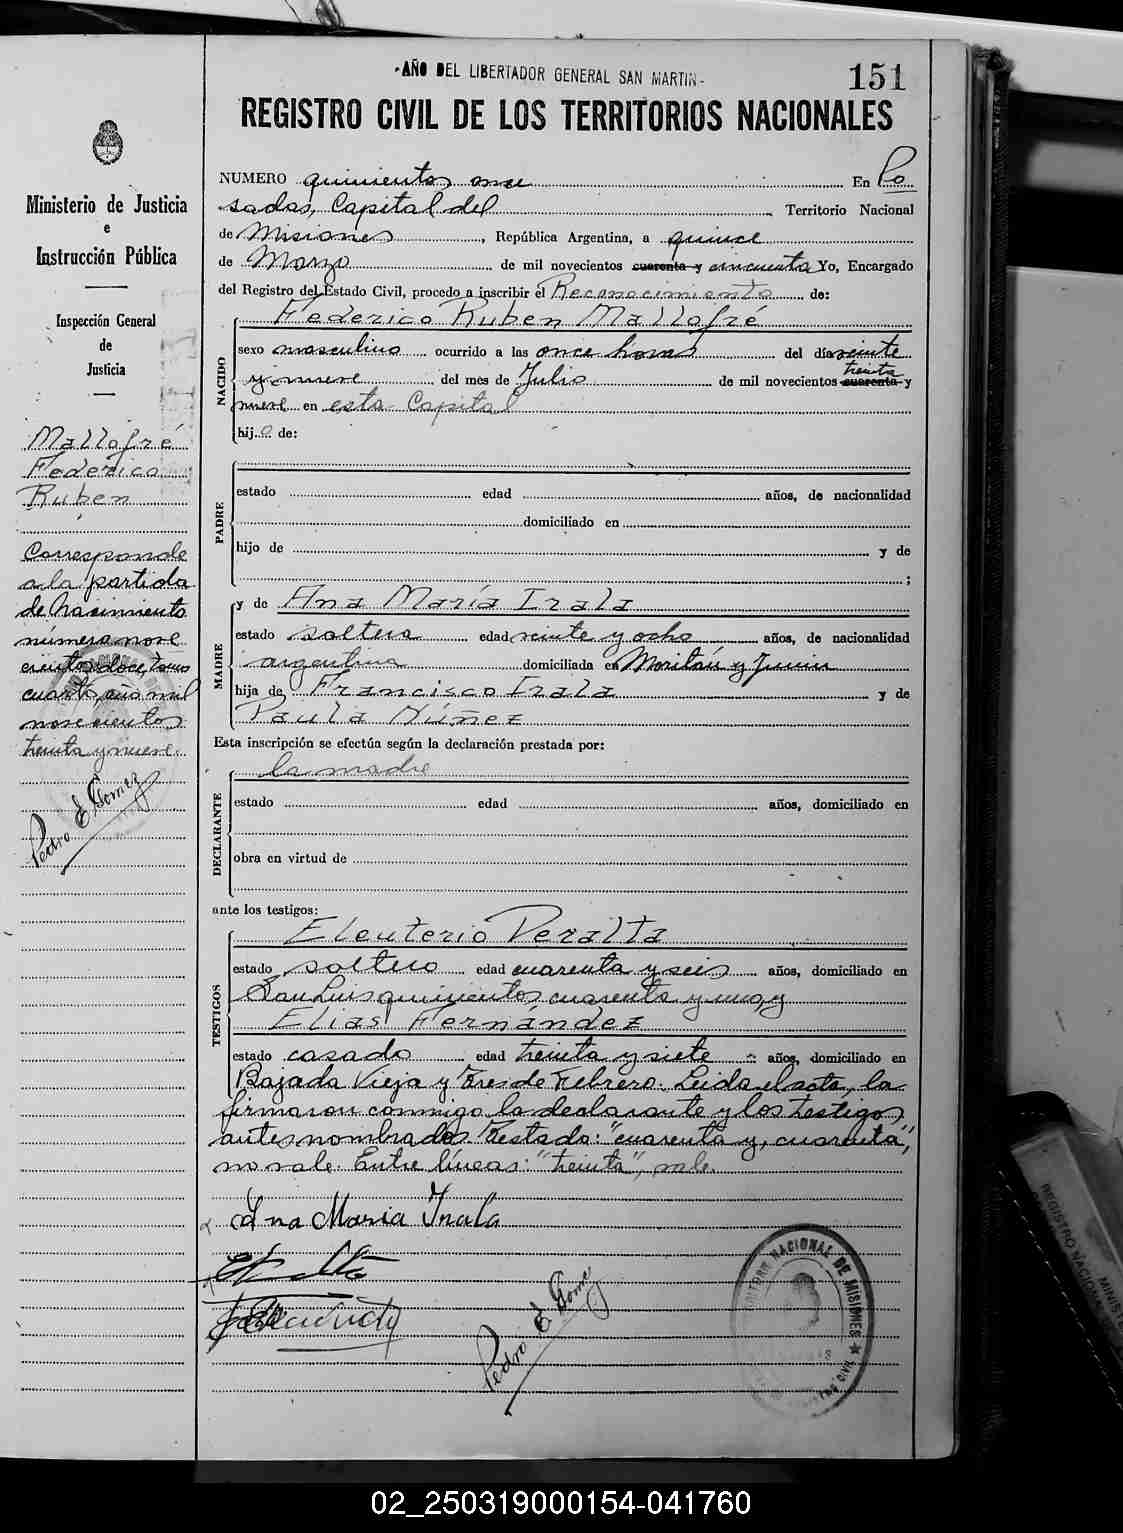 -AÑO DEL LIBERTADOR GENERAL SAN MARTIN-
151
REGISTRO CIVIL DE LOS TERRITORIOS NACIONALES
Ministerio de Justicia
e
Instrucción Pública
Inspección General
de
Justicia
Mallofré
Federico
Ruben
Corresponde
a la partida
de Nacimiento
número nove
cientos doce, tomo
cuarto, año mil
novecientos
treinta y nueve.
Pedro E Gomez
NUMERO quinientos once En Po
sadas, Capital del Territorio Nacional
de Misiones, República Argentina, a quince
de Marzo de mil novecientos cuarenta y cincuenta Yo, Encargado
del Registro del Estado Civil, procedo a inscribir el Reconocimiento de:
Federico Ruben Mallofré
NACIDO
sexo masculino ocurrido a las once horas del día veinte
treinta
y nueve del mes de Julio de mil novecientos cuarenta y
nueve en esta Capital
hijo de:
PADRE
estado edad años, de nacionalidad
domiciliado en
hijo de y de
;
MADRE
y de Ana María Irala
estado soltera edad veinte y ocho años, de nacionalidad
argentina domiciliada en y Junin
hija de Francisco Irala y de
Paula Núñez
Esta inscripción se efectúa según la declaración prestada por:
la madre
DECLARANTE
estado edad años, domiciliado en
obra en virtud de
ante los testigos:
TESTIGOS
Eleuterio Peralta
estado soltero edad cuarenta y seis años, domiciliado en
San Luis quinientos cuarenta y uno, y
Elias Fernández
estado casado edad treinta y siete años, domiciliado en
Bajada Vieja y Tres de Febrero. Leida el acta, la
firmaron conmigo la declarante y los testigos
antes nombrados. Testado: "cuarenta y, cuarenta",
no vale. Entre líneas: "treinta", vale.
Ana Maria Irala
Pedro E Gomez
NACIONAL DE MISIONES
REGISTRO CIVIL
REGISTRO NACIONAL
MINISTE
02_250319000154-041760